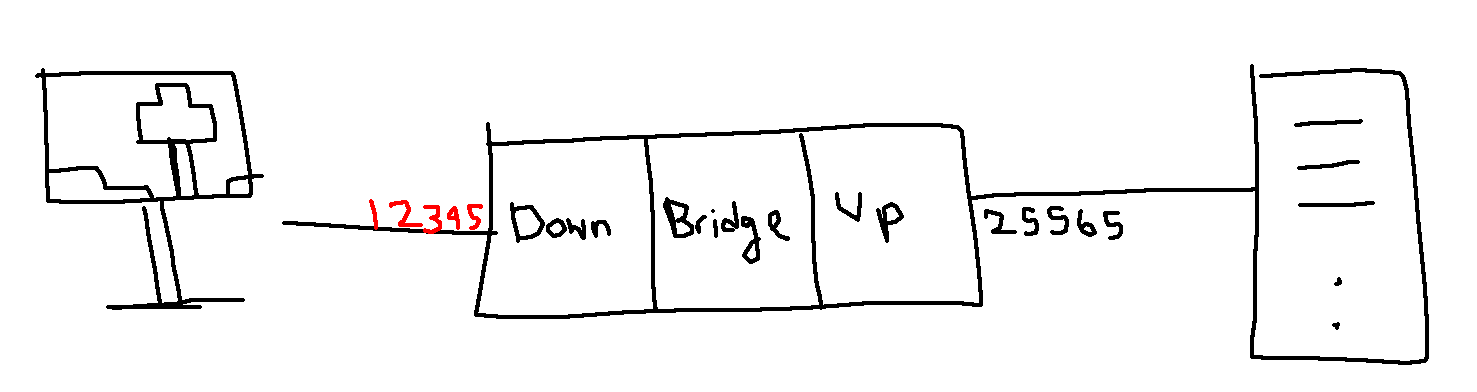 12345 Down Bridge Up 25565